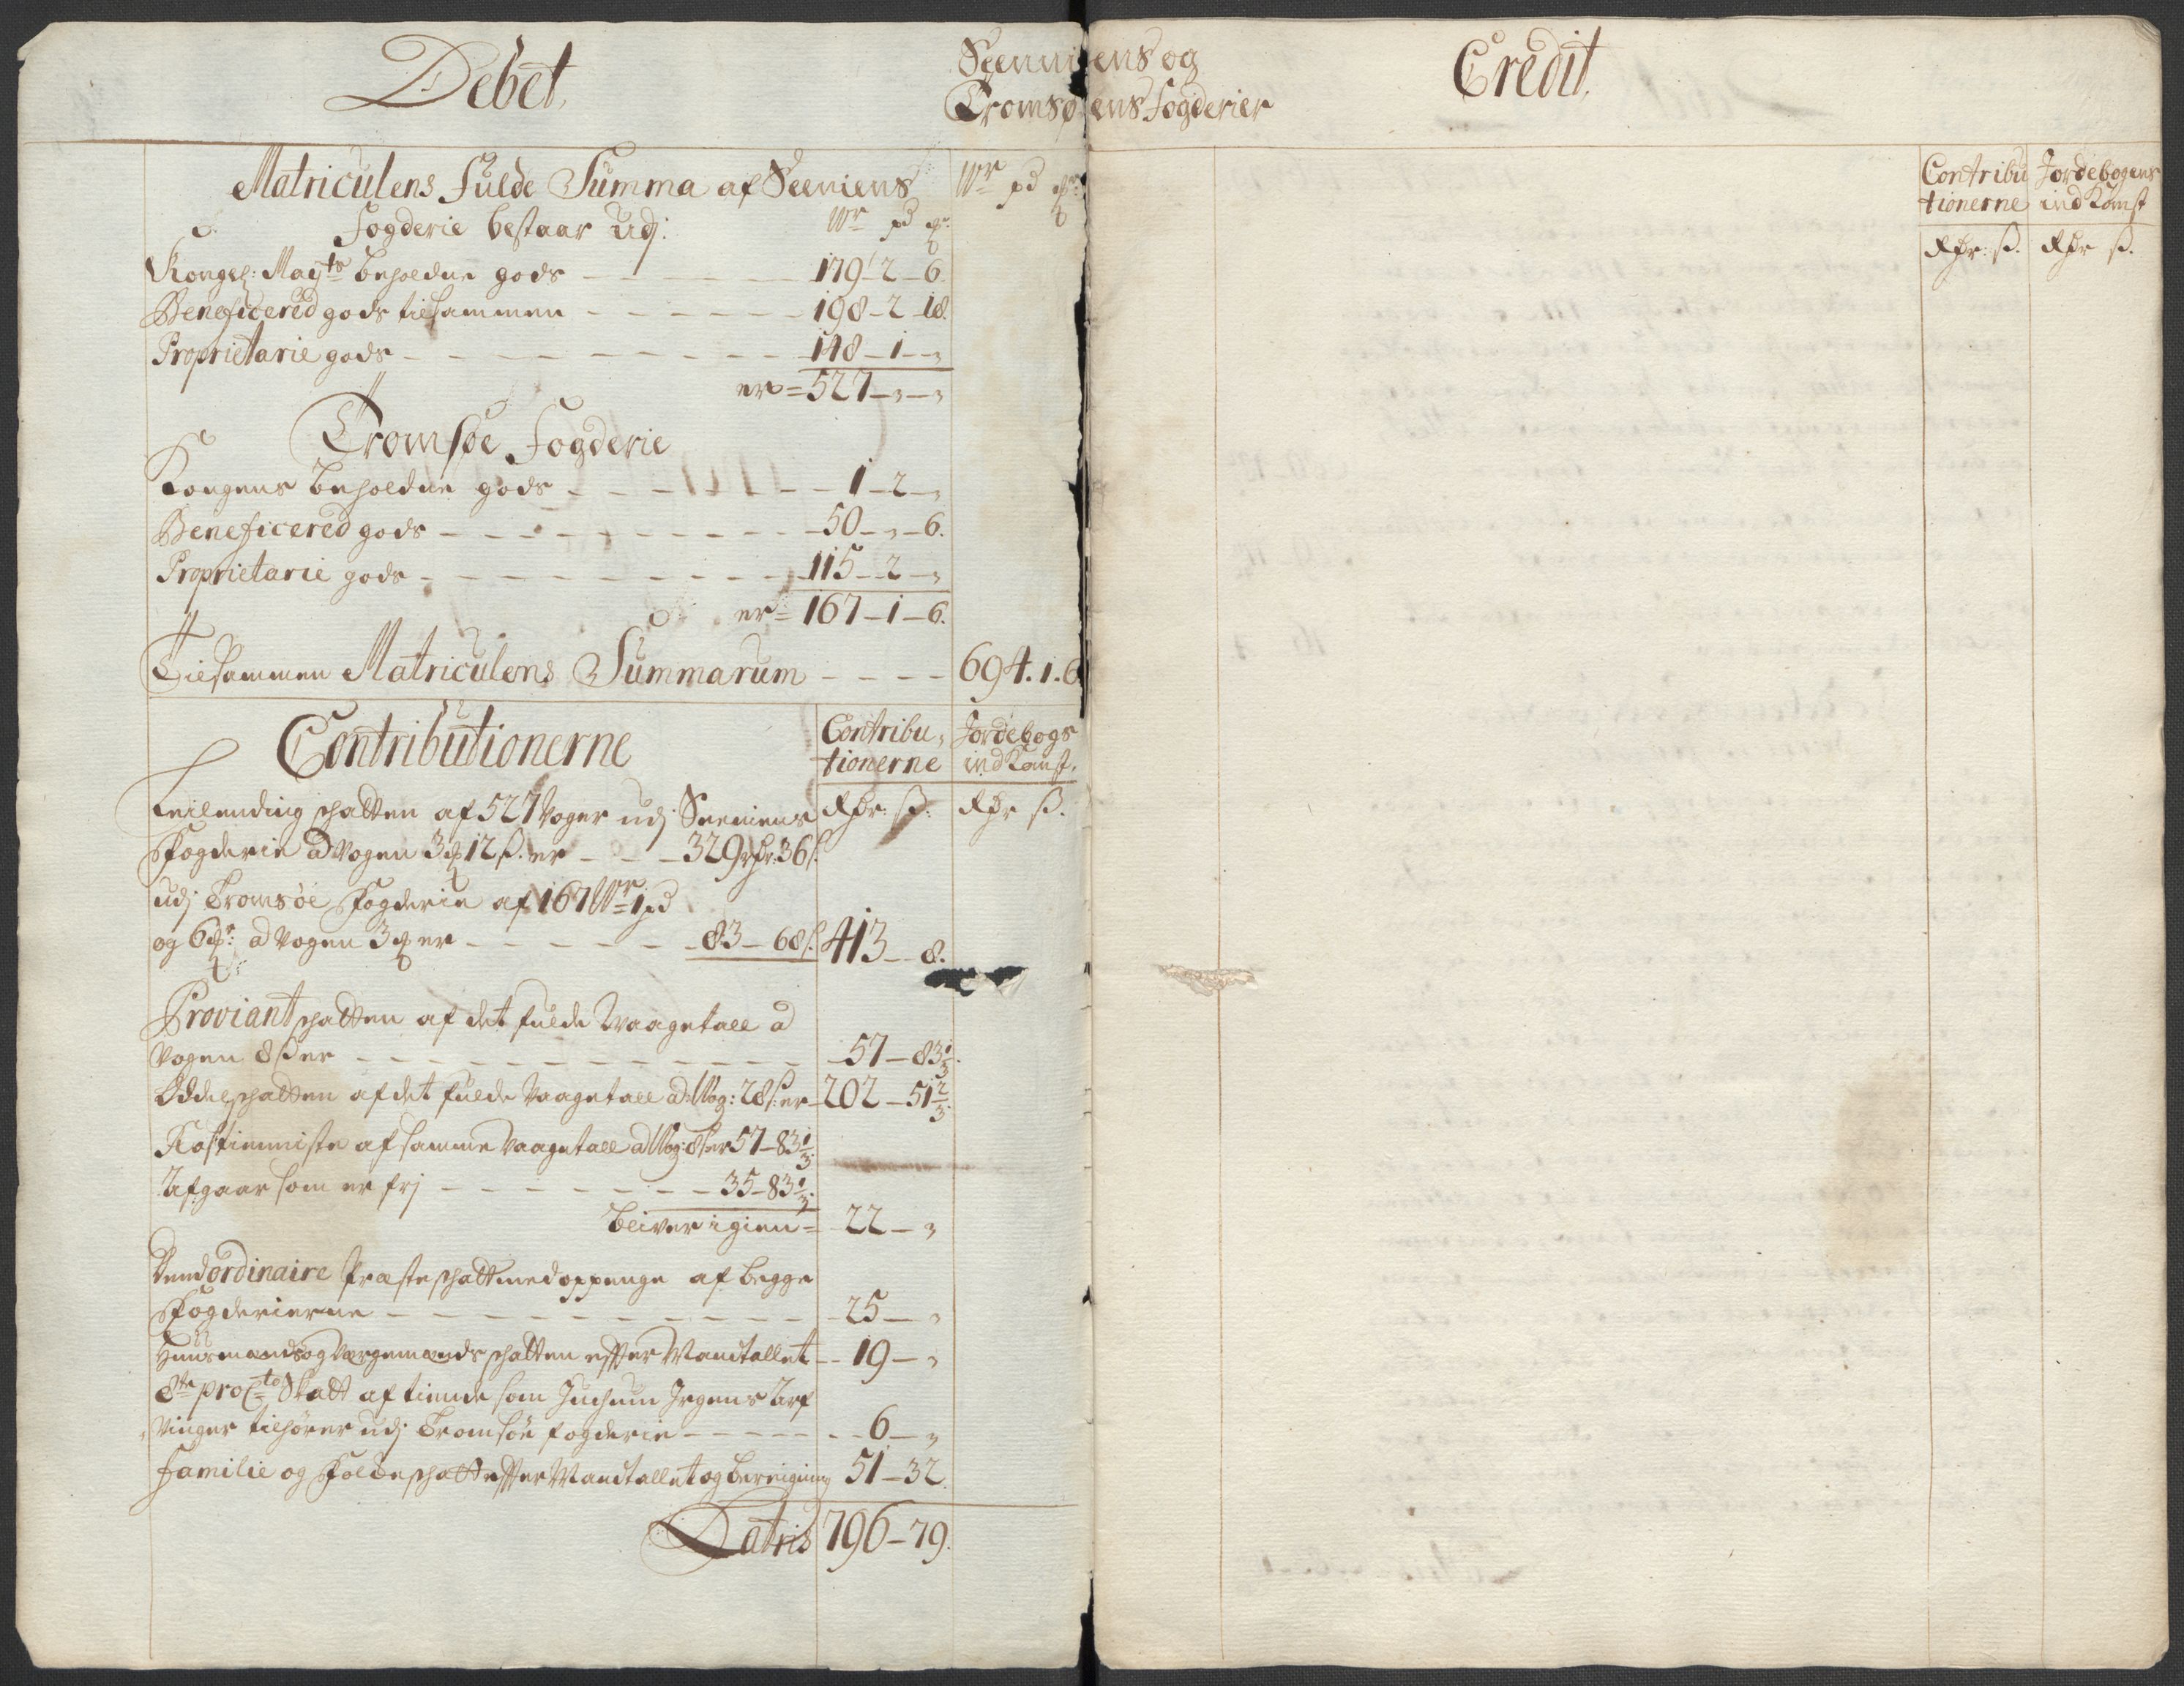 Debet,
Seenniens og
Tromsøens Fogderier
Credit,
Matriculens Fulde Summa af Seeniens
Wr pd
Fogderie bestaar Udj:
Wr pd
Kongel: Mayts beholdne gods — 179 – 2 – 6
Beneficered gods tilsammen — 198 – 2 – 18.
Proprietarie gods — 148 – 1 – „
er = 527 – „ – „
Tromsøe Fogderie
Kongens beholdne gods — 1 – 2 – „
Beneficered gods — 50 – „ – 6.
Proprietarie gods — 115 – 2 – „
er = 167 – 1 – 6.
Tilsammen Matriculens Summarum — 694. 1. 6
Contributionerne
Contribu,
tionerne
Jordebogs
indKomst,
Leilending schatten af 527 Voger udj Seeniens
Rdr: ß. Rdr ß.
Fogderie a Vogen 3 12 ß. er — 329 rdr: 36 ß.
udj Tromsøe Fogderie af 167 Wr 1 pd
og 6 a Vogen 3 er — 83 – 68 ß. 413 – 8.
Proviant schatten af det fulde Waagetall a
Vogen 8 ß er — 57 – 83 1/3.
Oddelschatten af det fulde Vaagetall a Wog: 28 ß: er – 202 – 51 2/3.
Rostienniste af samme Vaagetall a Wog: 8 ß er 57 – 83 1/3.
Afgaar som er frj — 35 – 83 1/3.
bliver igien = 22 – „
Dend ordinaire Præsteschatt med oppenge af begge
Fogderierne — 25 – „
Huusmands og Vergemands schatten effter Mandtallet – 19 – „
8te pro Cto Skatt af tiende som Juchum Jrgens Arf
vinger tilhører udj Tromsöe fogderie — 6 – „
Familie og Folcke schatt effter Mandtallet og beregning 51 – 32.
Latris 796 – 79.
Contribu
tionerne
Jordebogens
indKomst
Rdr: ß. Rdr ß.